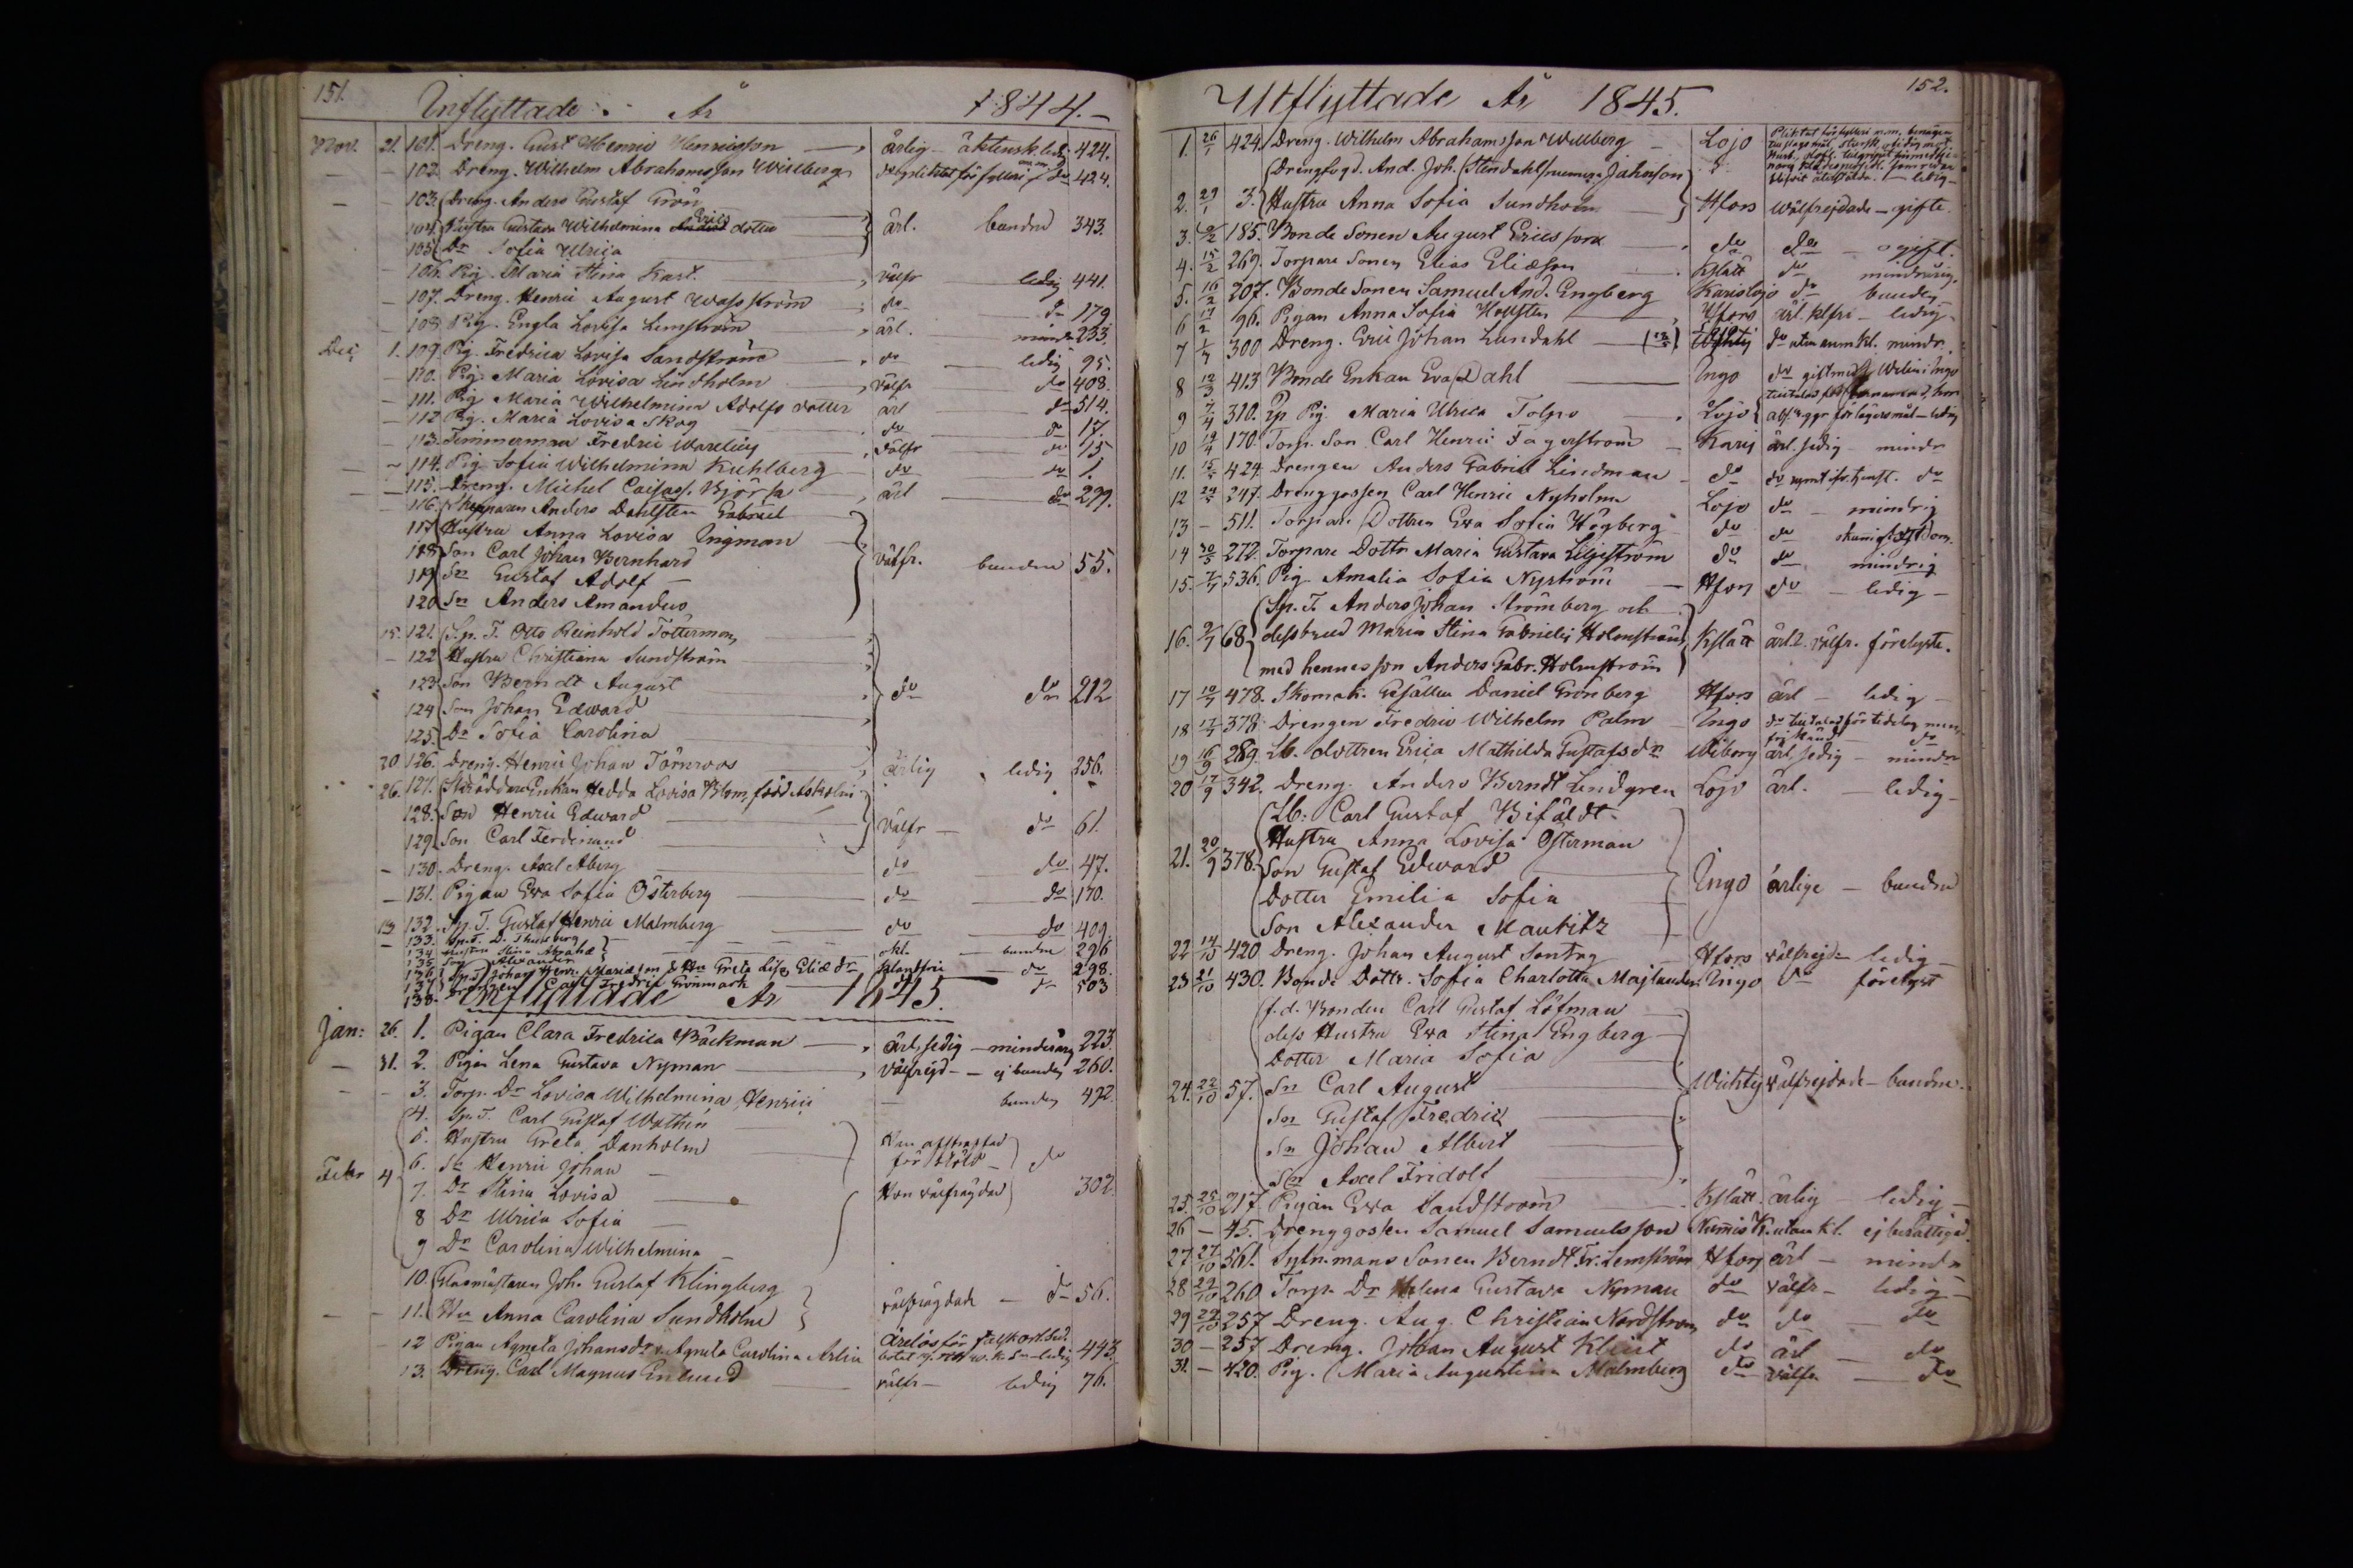 151.
Inflyttade År 1844.
Nov. 21. 101. Dreng. Gust Henric Henricsson ärlig äktensk. ledig 424.
102. Dreng. Wilhelm Abrahamsson Willberg do plictat för fylleri do 424.
103. Dreng. Anders Gustaf Grön
104. Hustru Gustava Wilhelmina Erics dotter ärl. bundne 343.
105. Dr Sofia Ulrica
106. Pig. Maria Stina Kast. välfr ledig 441.
107. Dreng. Henric August Wasström do do 179
108. Pig. Engla Lovisa Lemström ärl. mindr 233.
Dec. 1. 109. Pig. Fredrica Lovisa Sandström do ledig 95.
110. Pig. Maria Lovisa Lindholm välfr do 408.
111. Pig. Maria Wilhelmina Adolfs dotter ärl do 514.
112. Pig. Maria Lovisa Skog do do 17.
113. Timmerman Fredric Warelius välfr do 15
114. Pig. Sofia Wilhelmina Kuhlberg do do 1.
115. Dreng. Michel Björk ärl do 299.
116. Skepparen Anders Dahlsten Gabriel
117. Hustru Anna Lovisa Ingman
118. Son Carl Johan Bernhard välfr. bundne 55.
119. Sn Gustaf Adolf
120. Sn Anders Amandus
15. 121. Sp. T. Otto Reinhold Tötterman
122. Hustru Christiana Sundström
123. Son Berndt August do do 212
124. Son Johan Edward
125. Dr Sofia Carolina
20. 126. Dreng. Henric Johan Törnroos ärlig ledig 256.
26. 127. Skräddare Enkan Hedda Lovisa Blom, född Askolin
128. Son Henric Edward välfr do 61.
129. Son Carl Ferdinand
130. Dreng. Axel Åberg do do 47.
131. Pigan Eva Sofia Österberg do do 170.
13 132. Sp. T. Gustaf Henric Malmberg do do 409.
133. Sp. T. D. Thunberg
134. Hustru Stina Abrahd okl. bundne 296
135. Son Alexander
136. Sp. T. Johan Henr. Mariæson & Hu Greta Lisa Eliædr klandfri do 298.
137. Drengen Carl Fredric Grönmark do 503
138.
Inflyttade År 1845.
Jan: 26. 1. Pigan Clara Fredrica Bäckman ärl. sedig minderårig 223.
31. 2. Pigan Lena Gustava Nyman välfrejd ej bunden 260.
3. Torp. Dr Lovisa Wilhelmina Henrici bunden 492
4. Sp. T. Carl Gustaf Wathén
5. Hustru Greta Danholm Han afstraffad
Febr 4 6. Sn Henric Johan för stöld do
7. Dr Stina Lovisa Hon välfrägdad 302.
8 Dr Ulrica Sofia
9 Dr Carolina Wilhelmina
10. Glasmästaren Joh. Gustaf Klingberg välfrägdade do 56.
11. Hu Anna Carolina Sundholm
12 Pigan Agneta Johansdr Agneta Carolina Arlin ledig 443.
13. Dreng. Carl Magnus Enlund välfr ledig 76.
152.
Utflyttade År 1845.
1. 26/1 424. Dreng. Wilhelm Abrahamsson Willberg Lojo
Drengfogd. And. Joh. Stendahl Jahnsson
2. 29/1 3. Hustru Anna Sofia Sundholm Hfors Wälfrejdade gifte.
3. 9/2 185. Bonde Sonen August Ericsson do do ogift.
4. 15/2 269. Torpare Sonen Elias Eliæson Kslätt do minderårig.
5. 16/2 207. Bonde Sonen Samuel And. Engberg Karislojo do bunden
6 17/2 96. Pigan Anna Sofia Hollsten Hfors ärl. klfri ledig
7 1/4 300 Dreng. Eric Johan Lundahl do utan anm kl. mindr.
8 12/3 413 Bonde Enkan Eva Dahl Ingo do
9 4/4 310. Pig. Maria Ulrica Tolpo Lojo ledig
10 19/4 170. Torp. Son Carl Henric Fagerström Karis ärl. sedig mindr
11. 15/5 424. Drengen Anders Gabriel Lindman do do do
12 24/5 247. Drenggossen Carl Henric Nyholm Lojo do mindrig
13 — 511. Torpare Dottren Eva Sofia Högberg do do
14 30/5 272. Torpare Dottr. Maria Gustava Liljeström do do mindrig
15. 7/7 536. Pig. Amalia Sofia Nyström Hfors do ledig
Sp. T. Anders Johan Strömberg och
16. 9/7 68 dess brud Maria Stina Gabrielis Holmström Kslätt ärl. välfr. förelyste.
med hennes son Anders Gabr. Holmström
17 10/7 478. Skomak. Gesällen Daniel Grönberg Hfors ärl ledig
18 17/7 378. Drengen Fredric Wilhelm Palm Ingo do
19 16/9 289. Lb. dottren Erica Mathilda Gustafsdr Wiborg ärl. sedig mindr
20 17/9 342. Dreng. Anders Berndt Lindgren Lojo ärl. ledig
Lb. Carl Gustaf Bifäldt
Hustru Anna Lovisa Österman
21. 20/9 378. Son Gustaf Edward Ingo ärlige bundne
Dotter Emilia Sofia
Son Alexander Mauritz
22 14/10 420 Dreng. Johan August Sontag Hfors välfrejd ledig
23 21/10 430. Bonde Dottr. Sofia Charlotta Majlander Ingo do förelyst
f. d. Bonden Carl Gustaf Löfman
dess Hustru Eva Stina Engberg
Dotter Maria Sofia
24. 22/10 57. Sn Carl August Wichtis välfrejdade bundne.
Sn Gustaf Fredric
Sn Johan Albert
Sn Axel Fridolf
25. 25/10 217. Pigan Eva Sandström Kslätt. ärlig ledig
26 — 45. Drenggossen Samuel Samuelsson Numis K. utan kl. ej besättigad.
27. 27/10 561. Sytn.mans Sonen Berndt Fr. Lemström Hfors ärl mindr
28 29/10 260 Torp. Dr Helena Gustava Nyman do välfr ledig
29 29/10 257 Dreng. Aug. Christian Nordström do do do
30 — 257 Dreng. Johan August Klint do ärl do
31. — 420. Pig. Maria Augustina Malmberg do välfr do